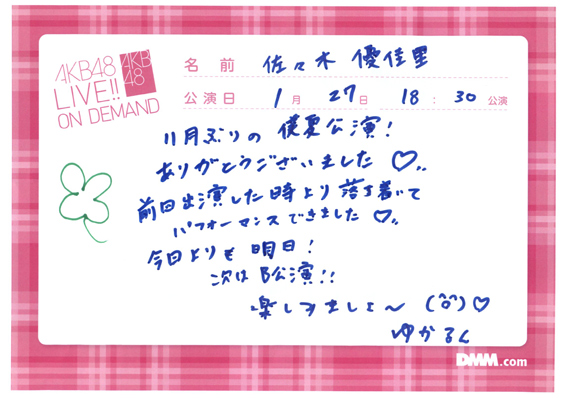 AKB48
LIVE!!
ON DEMAND
AKB
48
名前 佐々木 優佳里
公演日 1月 27日 18:30公演
11月ぶりの 僕夏公演!
ありがとうございました♡
前回出演した時より落ち着いて
パフォーマンスできました♡
今日よりも 明日!
次はB公演!!
楽しみましょ〜 (^o^)♡
ゆかるん
DMM.com